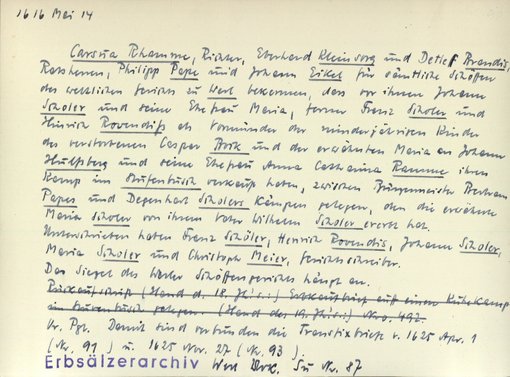 1616 Mai 14
Carsna Rhamme, Richter, Eberhard Kleinsorg und Detlef Brandis,
Ratsherren, Philipp Pape und Johann Eikel für sämtliche Schöffen
des weltlichen Gerichts zu Werl bekennen, dass vor ihnen Johann
Scholer und seine Ehefrau Maria, ferner Franz Scholer und
Hinrich Rovendiß als Vormünder der minderjährigen Kinder
des verstorbenen Caspar Brik und der erwähnten Maria an Johann
Hulsberg und seine Ehefrau Anna Catharina Ramme ihren
Kamp im verkauft haben, zwischen Bürgermeister Bertram
Papes und Degenhart Scholers Kämpen gelegen, den die erwähnte
Maria Scholer von ihrem Vater Wilhelm Scholer ererbt hat.
Unterschrieben haben Franz Schöler, Henrich Rovendis, Johann Scholer,
Maria Scholer und Christoph Meier, Gerichtsschreiber.
Das Siegel des Werler Schöffengerichts hängt an.
(Hand d. 18. Jhs.:) auf einen Kuhekamp
gelegen. (Hand des 19. Jhs.:) Nro. 492.
Or. Pgt. Damit sind verbunden die Transfixbriefe v. 1625 Apr. 1
(Nr. 91) u. 1625 Nov. 27 (Nr. 93).
Erbsälzerarchiv Werl Urk. Nr. 87